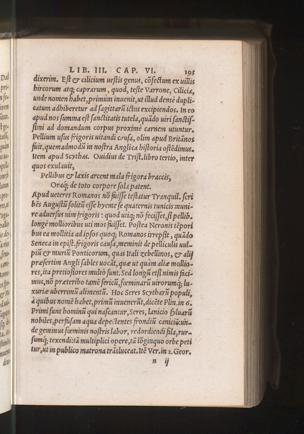 LIB. III. CAP. VI. 195
dixerim. Est & cilicium uestis genus, cōfectum ex uillis
hircorum atq; caprarum, quod, teste Varrone, Cilicia,
unde nomen habet, primùm inuenit, ut illud densè duplicatum
adhiberetur ad sagittarū ictus excipiendos. In eo
apud nos summa est sanctitatis tutela, quādo uiri sanctissimi
ad domandum corpus proximè carnem utuntur.
Pellium usus frigoris uitandi causa, olim apud Britānos
fuit, quemadmodū in nostra Anglica historia ostēdimus.
Item apud Scythas. Ouidius de Trist. libro tertio, inter
quos exulauit,
Pellibus & laxis arcent mala frigora braccis,
Oraq́; de toto corpore sola patent.
Apud ueteres Romanos nō fuisse testatur Tranquil. scribēs
Augustū solitū esse hyeme se quaternis tunicis munire
aduersus uim frigoris: quod utiq; nō fecisset, si pellib.
longè mollioribus uti mos fuisset. Postea Neronis tēporibus
ea mollities ad ipsos quoq; Romanos irrepsit, quādo
Seneca in epist. frigoris causa, meminit de pelliculis uulpiū
& muriū Ponticorum, quas Itali zebellinos, & alij
præsertim Angli sables uocāt, quæ ut quàm aliæ molliores,
ita pretiosiores multò sunt. Sed longū est nimis
nō præteribo tamē sericū, fœminarū uirorumq; luxuriæ
uberrimū alimentū. Hoc Seres Scytharū populi,
à quibus nomē habet, primū inuenerūt, dicēte Plin. in 6.
Primi sunt hominū qui noscantur, Seres, lanicio syluarū
nobiles, perfusam aqua depectentes frondiū caniciē: unde
geminus fœminis nostris labor, redordiendi fila, rursumq;
texendi: tā multiplici opere, tā lōginquo orbe petitur,
ut in publico matrona trāsluceat. Itē Ver. in 2. Geor.
n ij